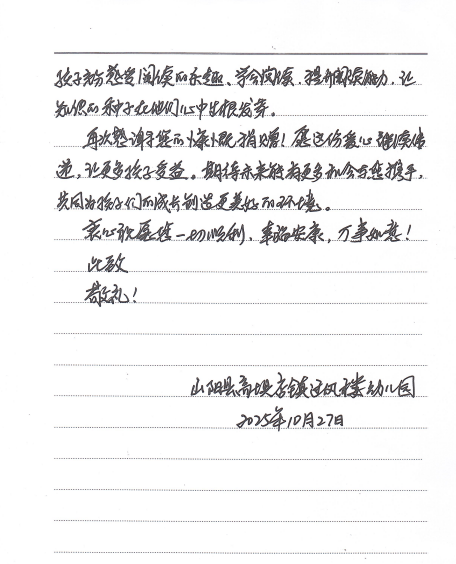 孩子充分感受阅读的乐趣、学会阅读、提升阅读能力，让
知识的种子在他们心中生根发芽。
再次感谢您的慷慨捐赠！愿这份爱心继续传
递，让更多孩子受益。期待未来能有更多机会与您携手，
共同为孩子们的成长创造更美好的环境。
衷心祝愿您一切顺利，幸福安康，万事如意！
此致
敬礼！
山阳县高坝店镇过风楼幼儿园
2025年10月27日